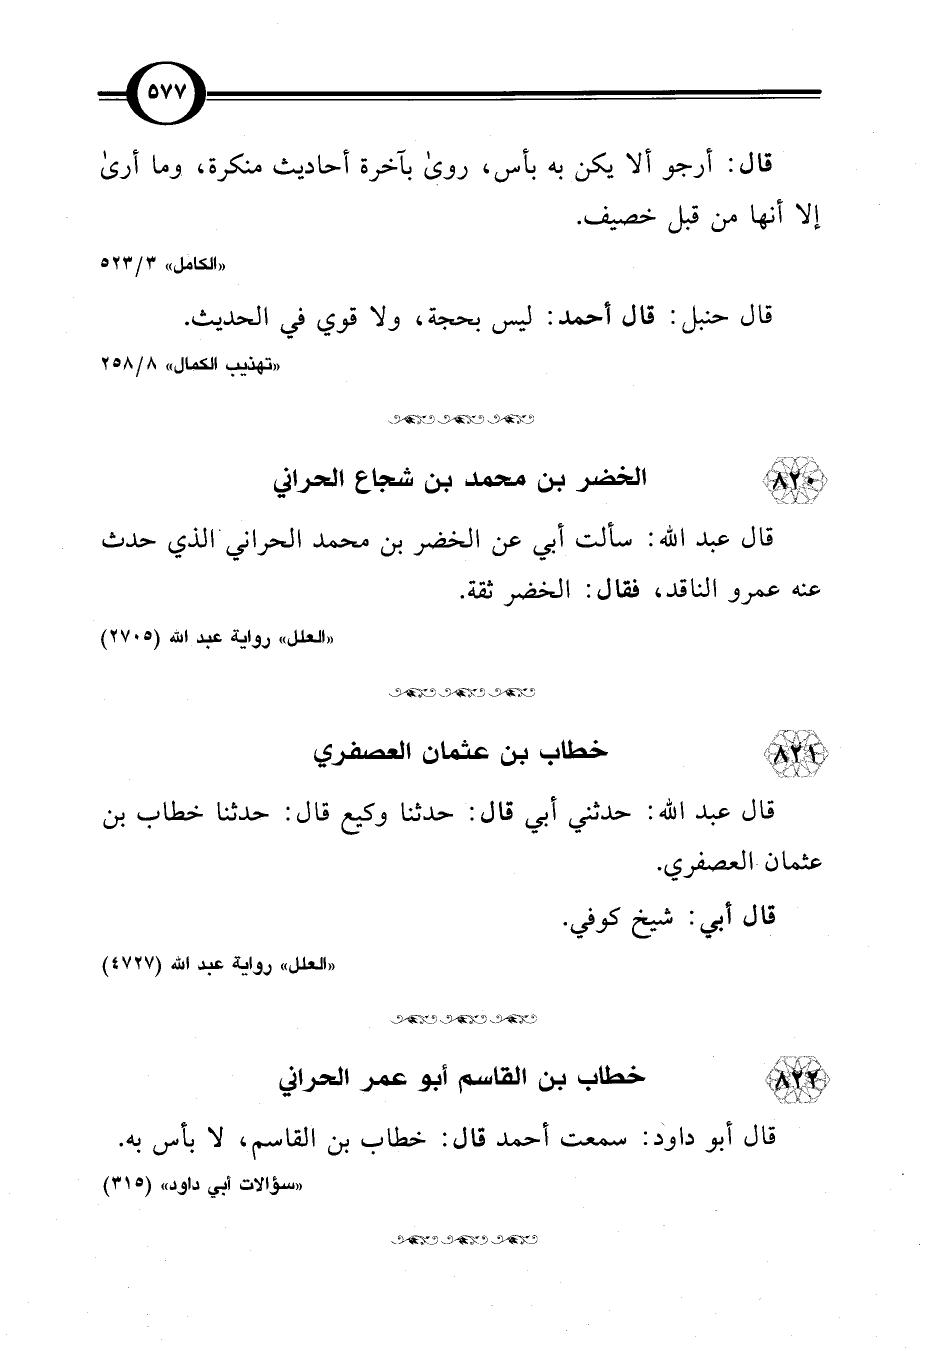 ٥٧٧
قال: أرجو ألا يكن به بأس، روىٰ بآخرة أحاديث منكرة، وما أرىٰ
إلا أنها من قبل خصيف.
«الكامل» ٣/ ٥٢٣
قال حنبل: قال أحمد: ليس بحجة، ولا قوي في الحديث.
«تهذيب الكمال» ٨/ ٢٥٨
٨٢٠ الخضر بن محمد بن شجاع الحراني
قال عبد الله: سألت أبي عن الخضر بن محمد الحراني الذي حدث
عنه عمرو الناقد، فقال: الخضر ثقة.
«العلل» رواية عبد الله (٢٧٠٥)
٨٢١ خطاب بن عثمان العصفري
قال عبد الله: حدثني أبي قال: حدثنا وكيع قال: حدثنا خطاب بن
عثمان العصفري.
قال أبي: شيخ كوفي.
«العلل» رواية عبد الله (٤٧٢٧)
٨٢٢ خطاب بن القاسم أبو عمر الحراني
قال أبو داود: سمعت أحمد قال: خطاب بن القاسم، لا بأس به.
«سؤالات أبي داود» (٣١٥)